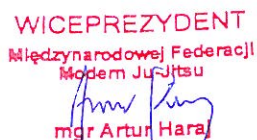 WICEPREZYDENT
Międzynarodowej Federacji
Modern Ju-Jitsu
mgr Artur Haraj